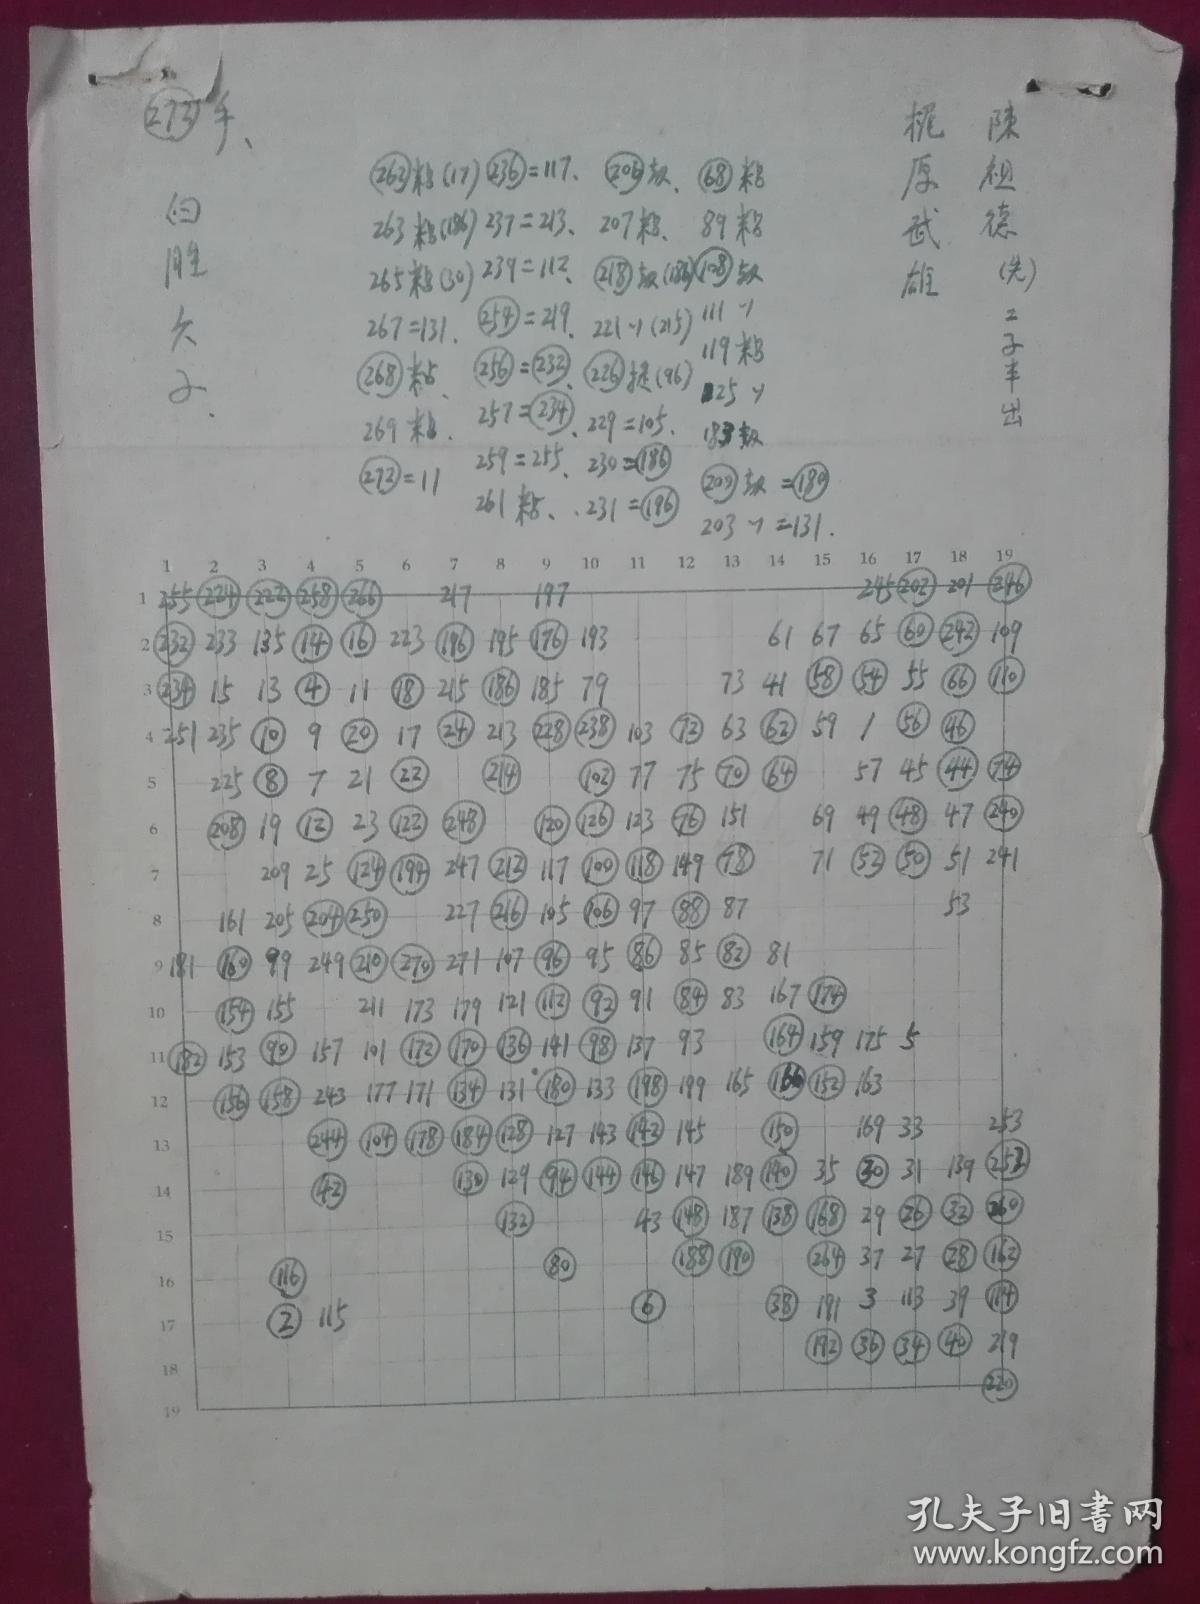 陳祖德(先)二子半出
梶原武雄
(272)手、
白胜六子.
(262)粘(17)
263粘(186)
265粘(30)
267=131.
(268)粘.
269粘.
(272)=11
(236)=117.
237=213.
239=112.
(254)=219.
(256)=(232).
257=(234).
259=255.
261粘.
(206)劫.
207粘.
221〃(215)
(226)提(96)
229=105.
230=(186)
231=(196)
(68)粘
89粘
(108)劫
111〃
119粘
125〃
183劫
203〃=131.
1 2 3 4 5 6 7 8 9 10 11 12 13 14 15 16 17 18 19
1 255 (224) (222) (258) (266) 217 197 245 (202) 201 (246)
2 (232) 233 135 (14) (16) 223 (196) 195 (176) 193 61 67 65 (60) (242) 109
3 (234) 15 13 (4) 11 (18) 215 (186) 185 79 73 41 (58) (54) 55 (66) (110)
4 251 235 (10) 9 (20) 17 (24) 213 (228) (238) 103 (72) 63 (62) 59 1 (56) (46)
5 225 (8) 7 21 (22) (214) (102) 77 75 (70) (64) 57 45 (44) (74)
6 (208) 19 (12) 23 (122) (248) (120) (126) 123 (76) 151 69 49 (48) 47 (240)
7 209 25 (124) (194) 247 (212) 117 (100) (118) 149 (78) 71 (52) (50) 51 241
8 161 205 (204) (250) 227 (216) 105 (106) 97 (88) 87 53
9 181 (160) 99 249 (210) (270) 271 107 (96) 95 (86) 85 (82) 81
10 (154) 155 211 173 179 121 (112) (92) 91 (84) 83 167 (174)
11 (182) 153 (90) 157 101 (172) (170) (136) 141 (98) 137 93 (164) 159 175 5
12 (156) (158) 243 177 171 (134) 131 (180) 133 (198) 199 165 (166) (152) 163
13 (244) (104) (178) (184) (128) 127 143 (142) 145 (150) 169 33 253
14 (42) (130) 129 (94) (144) (146) 147 189 (140) 35 (30) 31 139 (252)
15 (132) 43 (148) 187 (138) (168) 29 (26) (32) (260)
16 (116) (80) (188) (190) (264) 37 27 (28) (162)
17 (2) 115 (6) (38) 191 3 113 39 (114)
18 (192) (36) (34) (40) 219
19 (220)
孔夫子旧书网
www.kongfz.com